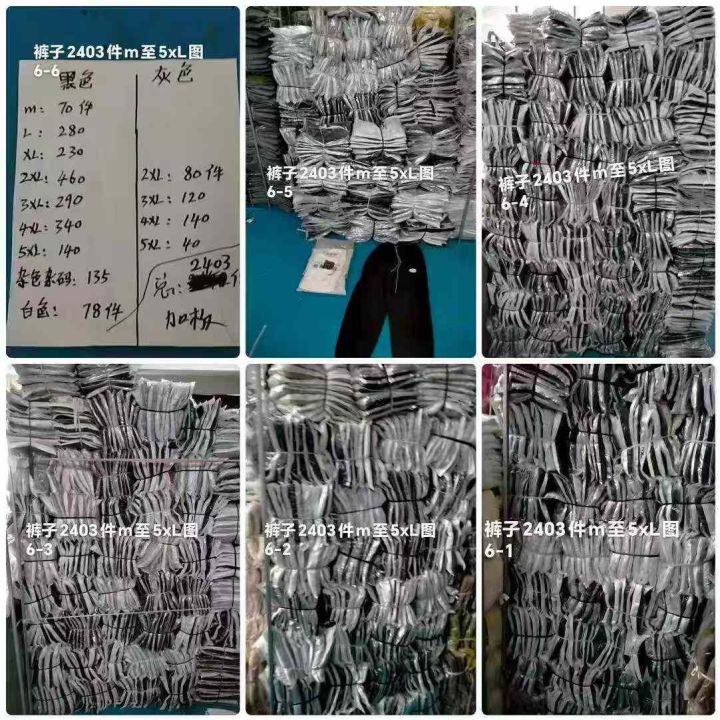 裤子2403件m至5xL图
6-6
黑色
m: 70件
L: 280
XL: 230
2XL: 460
3XL: 290
4XL: 340
5XL: 140
杂色杂码: 135
白色: 78件
灰色
2XL: 80件
3XL: 120
4XL: 140
5XL: 40
2403
总: 件
裤子2403件m至5xL图
6-5
裤子2403件m至5xL图
6-4
裤子2403件m至5xL图
6-3
裤子2403件m至5xL图
6-2
裤子2403件m至5xL图
6-1